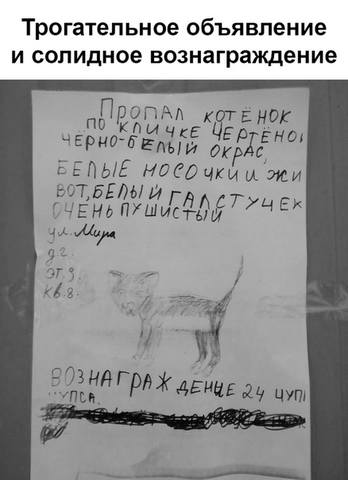 Трогательное объявление
и солидное вознаграждение
Пропал котёнок
по кличке Чертёнок
чёрно-белый окрас,
БЕЛЫЕ НОСОЧКИ И ЖИ
ВОТ, БЕЛЫЙ ГАЛСТУЧЕК
ОЧЕНЬ ПУШИСТЫЙ
ул. Мира
д.2.
эт.3.
кв.8.
ВОЗНАГРАЖДЕНИЕ 24 ЧУП
ЧУПСА.